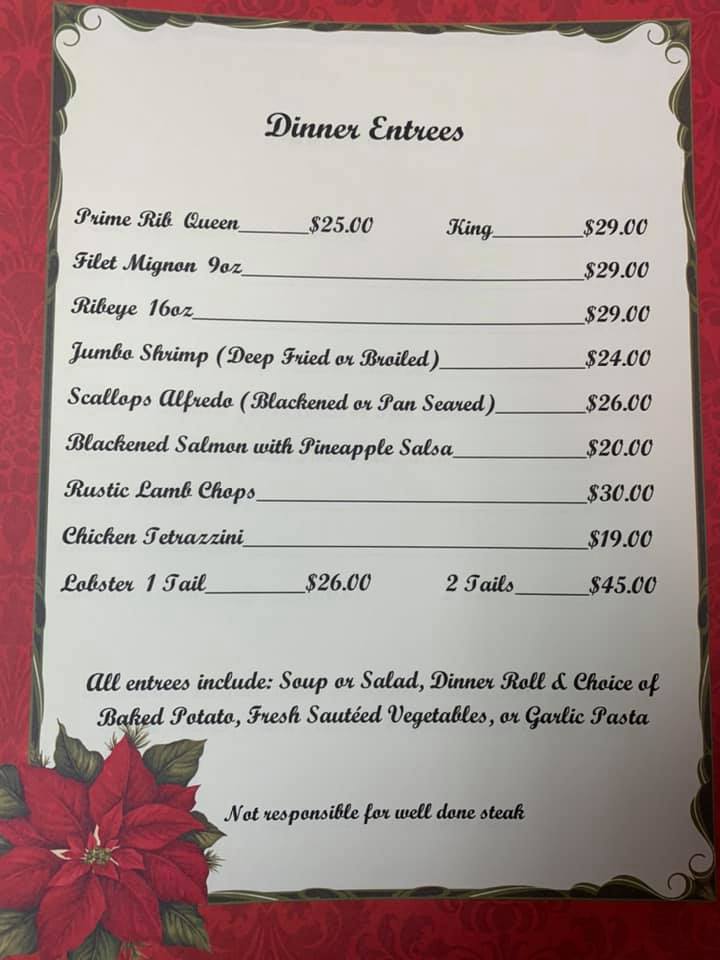 Dinner Entrees
Prime Rib Queen______$25.00 King________$29.00
Filet Mignon 9oz______________________________$29.00
Ribeye 16oz__________________________________$29.00
Jumbo Shrimp (Deep Fried or Broiled)_____________$24.00
Scallops Alfredo (Blackened or Pan Seared)________$26.00
Blackened Salmon with Pineapple Salsa____________$20.00
Rustic Lamb Chops_____________________________$30.00
Chicken Tetrazzini______________________________$19.00
Lobster 1 Tail_________$26.00 2 Tails_______$45.00
All entrees include: Soup or Salad, Dinner Roll & Choice of
Baked Potato, Fresh Sautéed Vegetables, or Garlic Pasta
Not responsible for well done steak